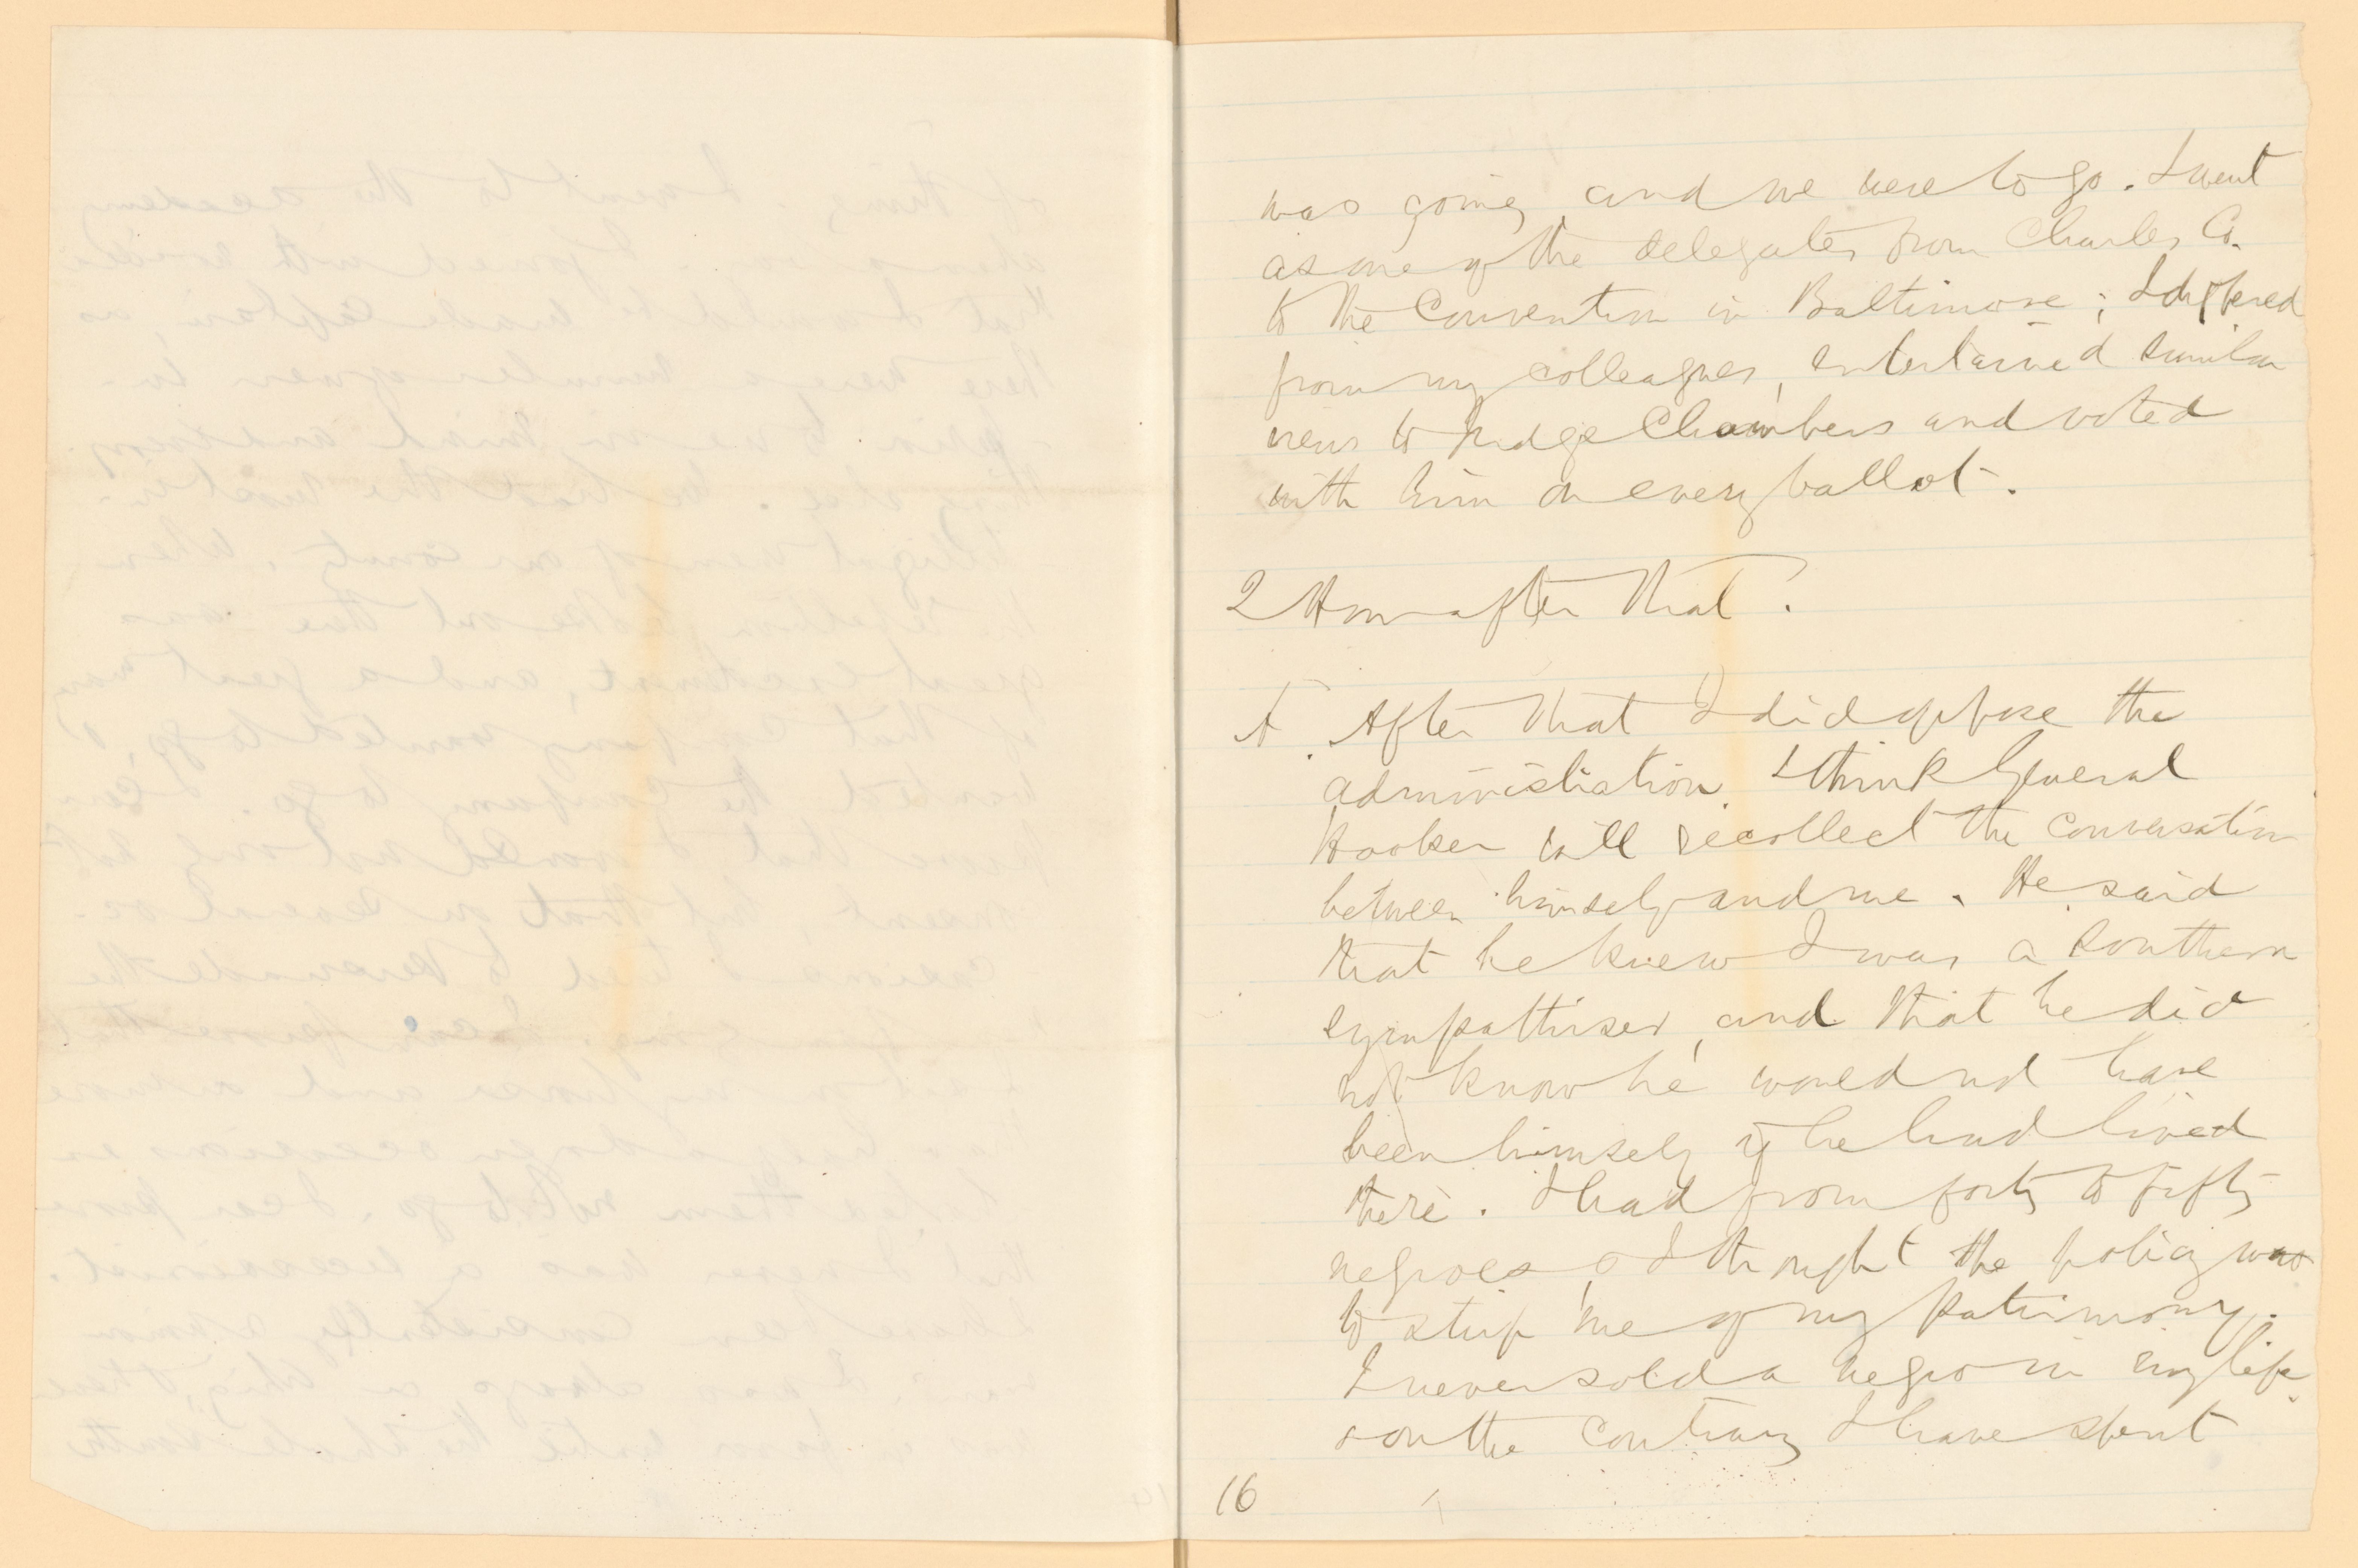 was going, and we were to go. I went
as one of the delegates from Charles Co.
to the Convention in Baltimore; I differed
from my colleagues, entertained similar
views to Judge Chambers and voted
with him on every ballot.
Q How after that?
A. After that I did oppose the
administration. I think General
Hooker will recollect the conversation
between himself and me. He said
that he knew I was a Southern
sympathiser, and that he did
not know he would not have
been himself if he had lived
there. I had from forty to fifty
negroes, & I thought the policy was
to strip me of my patrimony.
I never sold a negro in my life,
& on the contrary I have spent
16